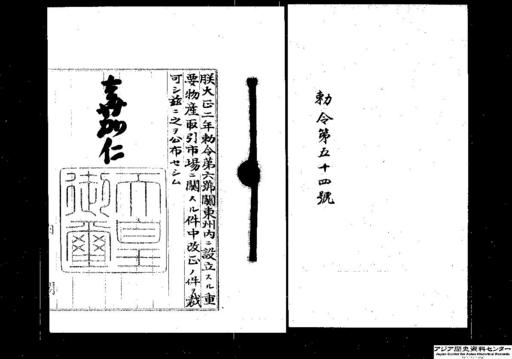 勅令第五十四號
朕大正二年勅令第六號關東州內ニ設立スル重
要物産取引市場ニ關スル件中改正ノ件ヲ裁
可シ茲ニ之ヲ公布セシム
嘉仁
天皇
御璽
アジア歴史資料センター
Japan Center for Asian Historical Records